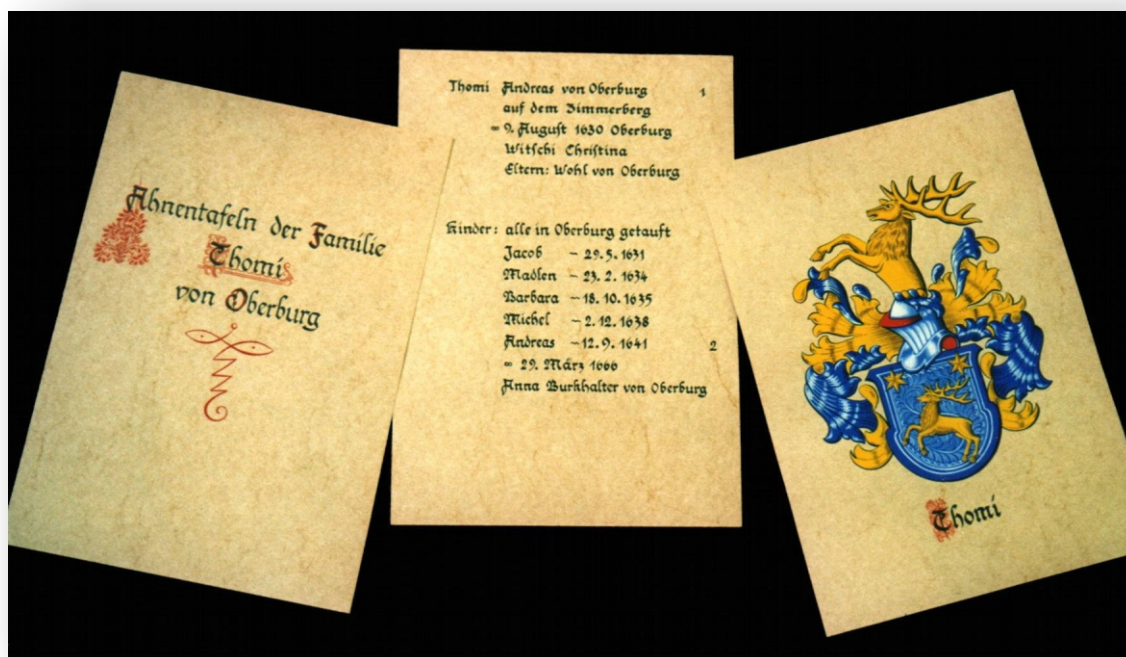 Ahnentafeln der Familie
Thomi
von Oberburg
Thomi Andreas von Oberburg 1
auf dem Zimmerberg
∞ 9. August 1630 Oberburg
Witschi Christina
Eltern: Wohl von Oberburg
Kinder: alle in Oberburg getauft
Jacob ~ 29. 5. 1631
Madlen ~ 23. 2. 1634
Barbara ~ 18. 10. 1635
Michel ~ 2. 12. 1638
Andreas ~ 12. 9. 1641 2
∞ 29. März 1666
Anna Burkhalter von Oberburg
Thomi